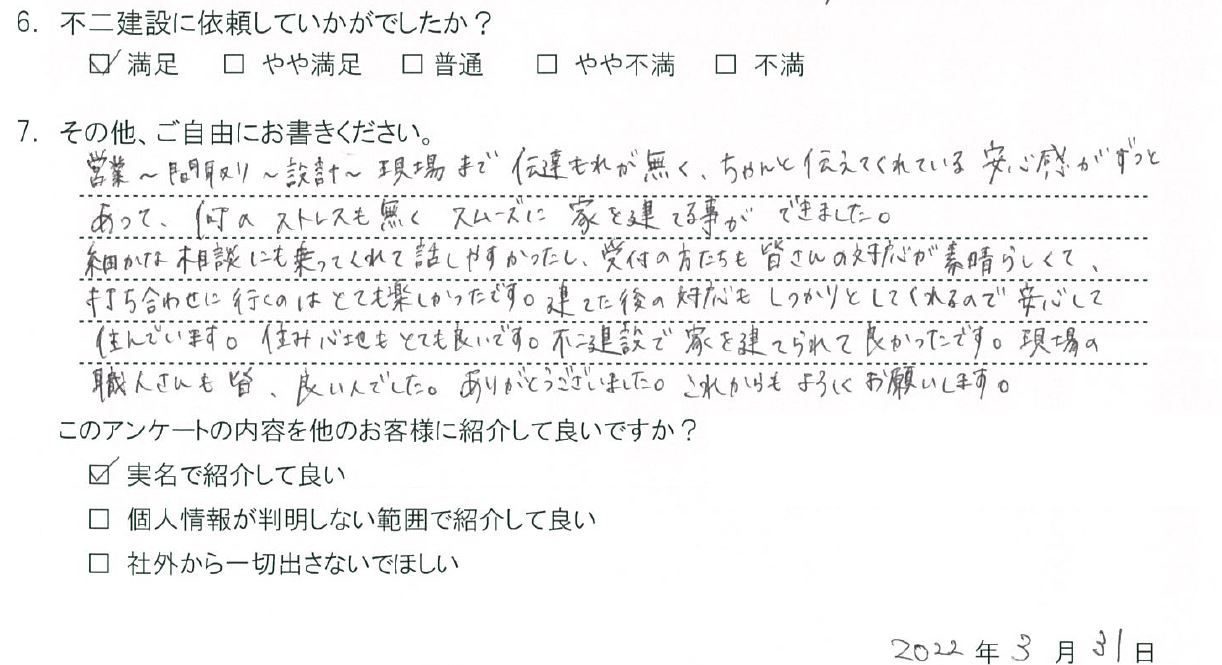 6. 不二建設に依頼していかがでしたか？
☑ 満足 □ やや満足 □ 普通 □ やや不満 □ 不満
7. その他、ご自由にお書きください。
営業～間取り～設計～現場まで伝達もれが無く、ちゃんと伝えてくれている安心感がずっと
あって、何のストレスも無くスムーズに家を建てる事ができました。
細かな相談にも乗ってくれて話しやすかったし、受付の方たちも皆さんの対応が素晴らしくて、
打ち合わせに行くのはとても楽しかったです。建てた後の対応もしっかりとしてくれるので安心して
住んでいます。住み心地もとても良いです。不二建設で家を建てられて良かったです。現場の
職人さんも皆、良い人でした。ありがとうございました。これからもよろしくお願いします。
このアンケートの内容を他のお客様に紹介して良いですか？
☑ 実名で紹介して良い
□ 個人情報が判明しない範囲で紹介して良い
□ 社外から一切出さないでほしい
2022年3月31日